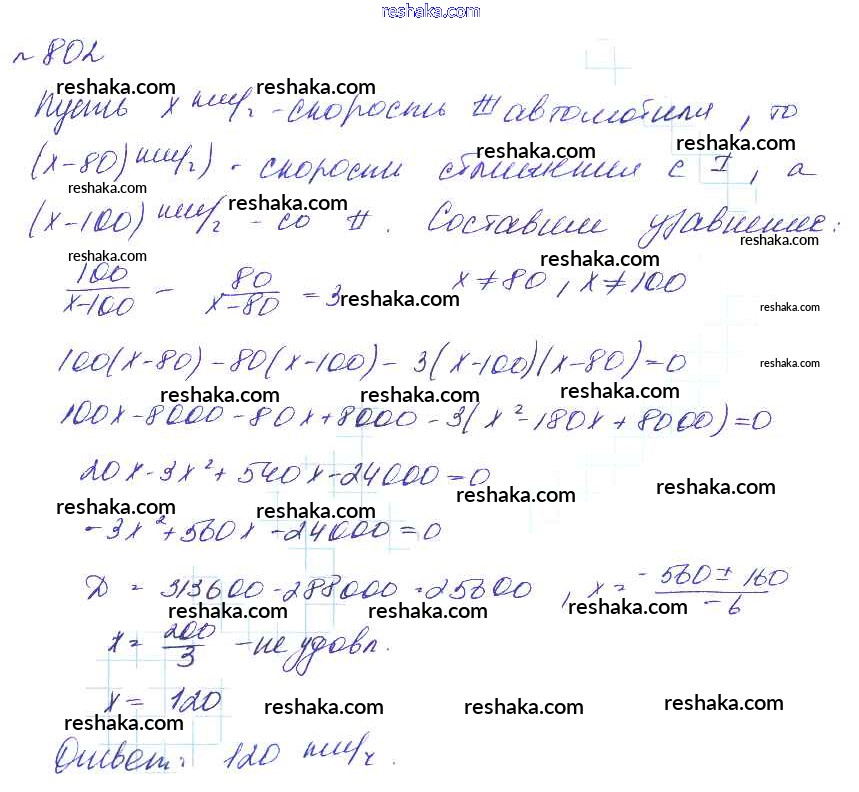 reshaka.com
№ 802
reshaka.com reshaka.com
Пусть x км/ч - скорость III автомобиля, то
reshaka.com reshaka.com
(x-80) км/ч) - скорость сближения с I, а
reshaka.com reshaka.com
(x-100) км/ч - со II. Составим уравнение:
reshaka.com reshaka.com
100/(x-100) - 80/(x-80) = 3 x≠80, x≠100
reshaka.com reshaka.com reshaka.com
100(x-80)-80(x-100)-3(x-100)(x-80)=0
reshaka.com reshaka.com reshaka.com reshaka.com
100x-8000-80x+8000-3(x²-180x+8000)=0
20x-3x²+540x-24000=0
reshaka.com reshaka.com reshaka.com reshaka.com
-3x²+560x-24000=0
D = 313600-288000=25600, x= (-560±160)/-6
reshaka.com reshaka.com reshaka.com
x= 200/3 - не удовл.
x= 120
reshaka.com reshaka.com reshaka.com reshaka.com
Ответ: 120 км/ч.